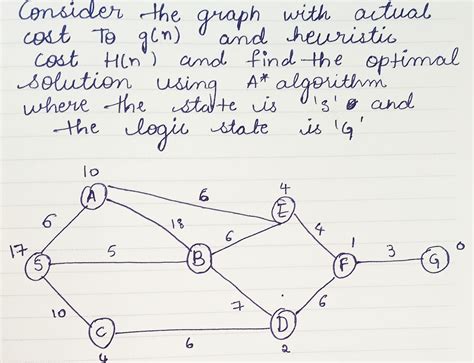 Consider the graph with actual
cost To g(n) and heuristic
cost H(n) and find the optimal
solution using A* algorithm
where the state is 'S' and
the logic state is 'G'
10
A
6
4
E
6
18
6
4
1
0
17
S
5
B
F
3
G
10
7
6
C
6
D
4
2